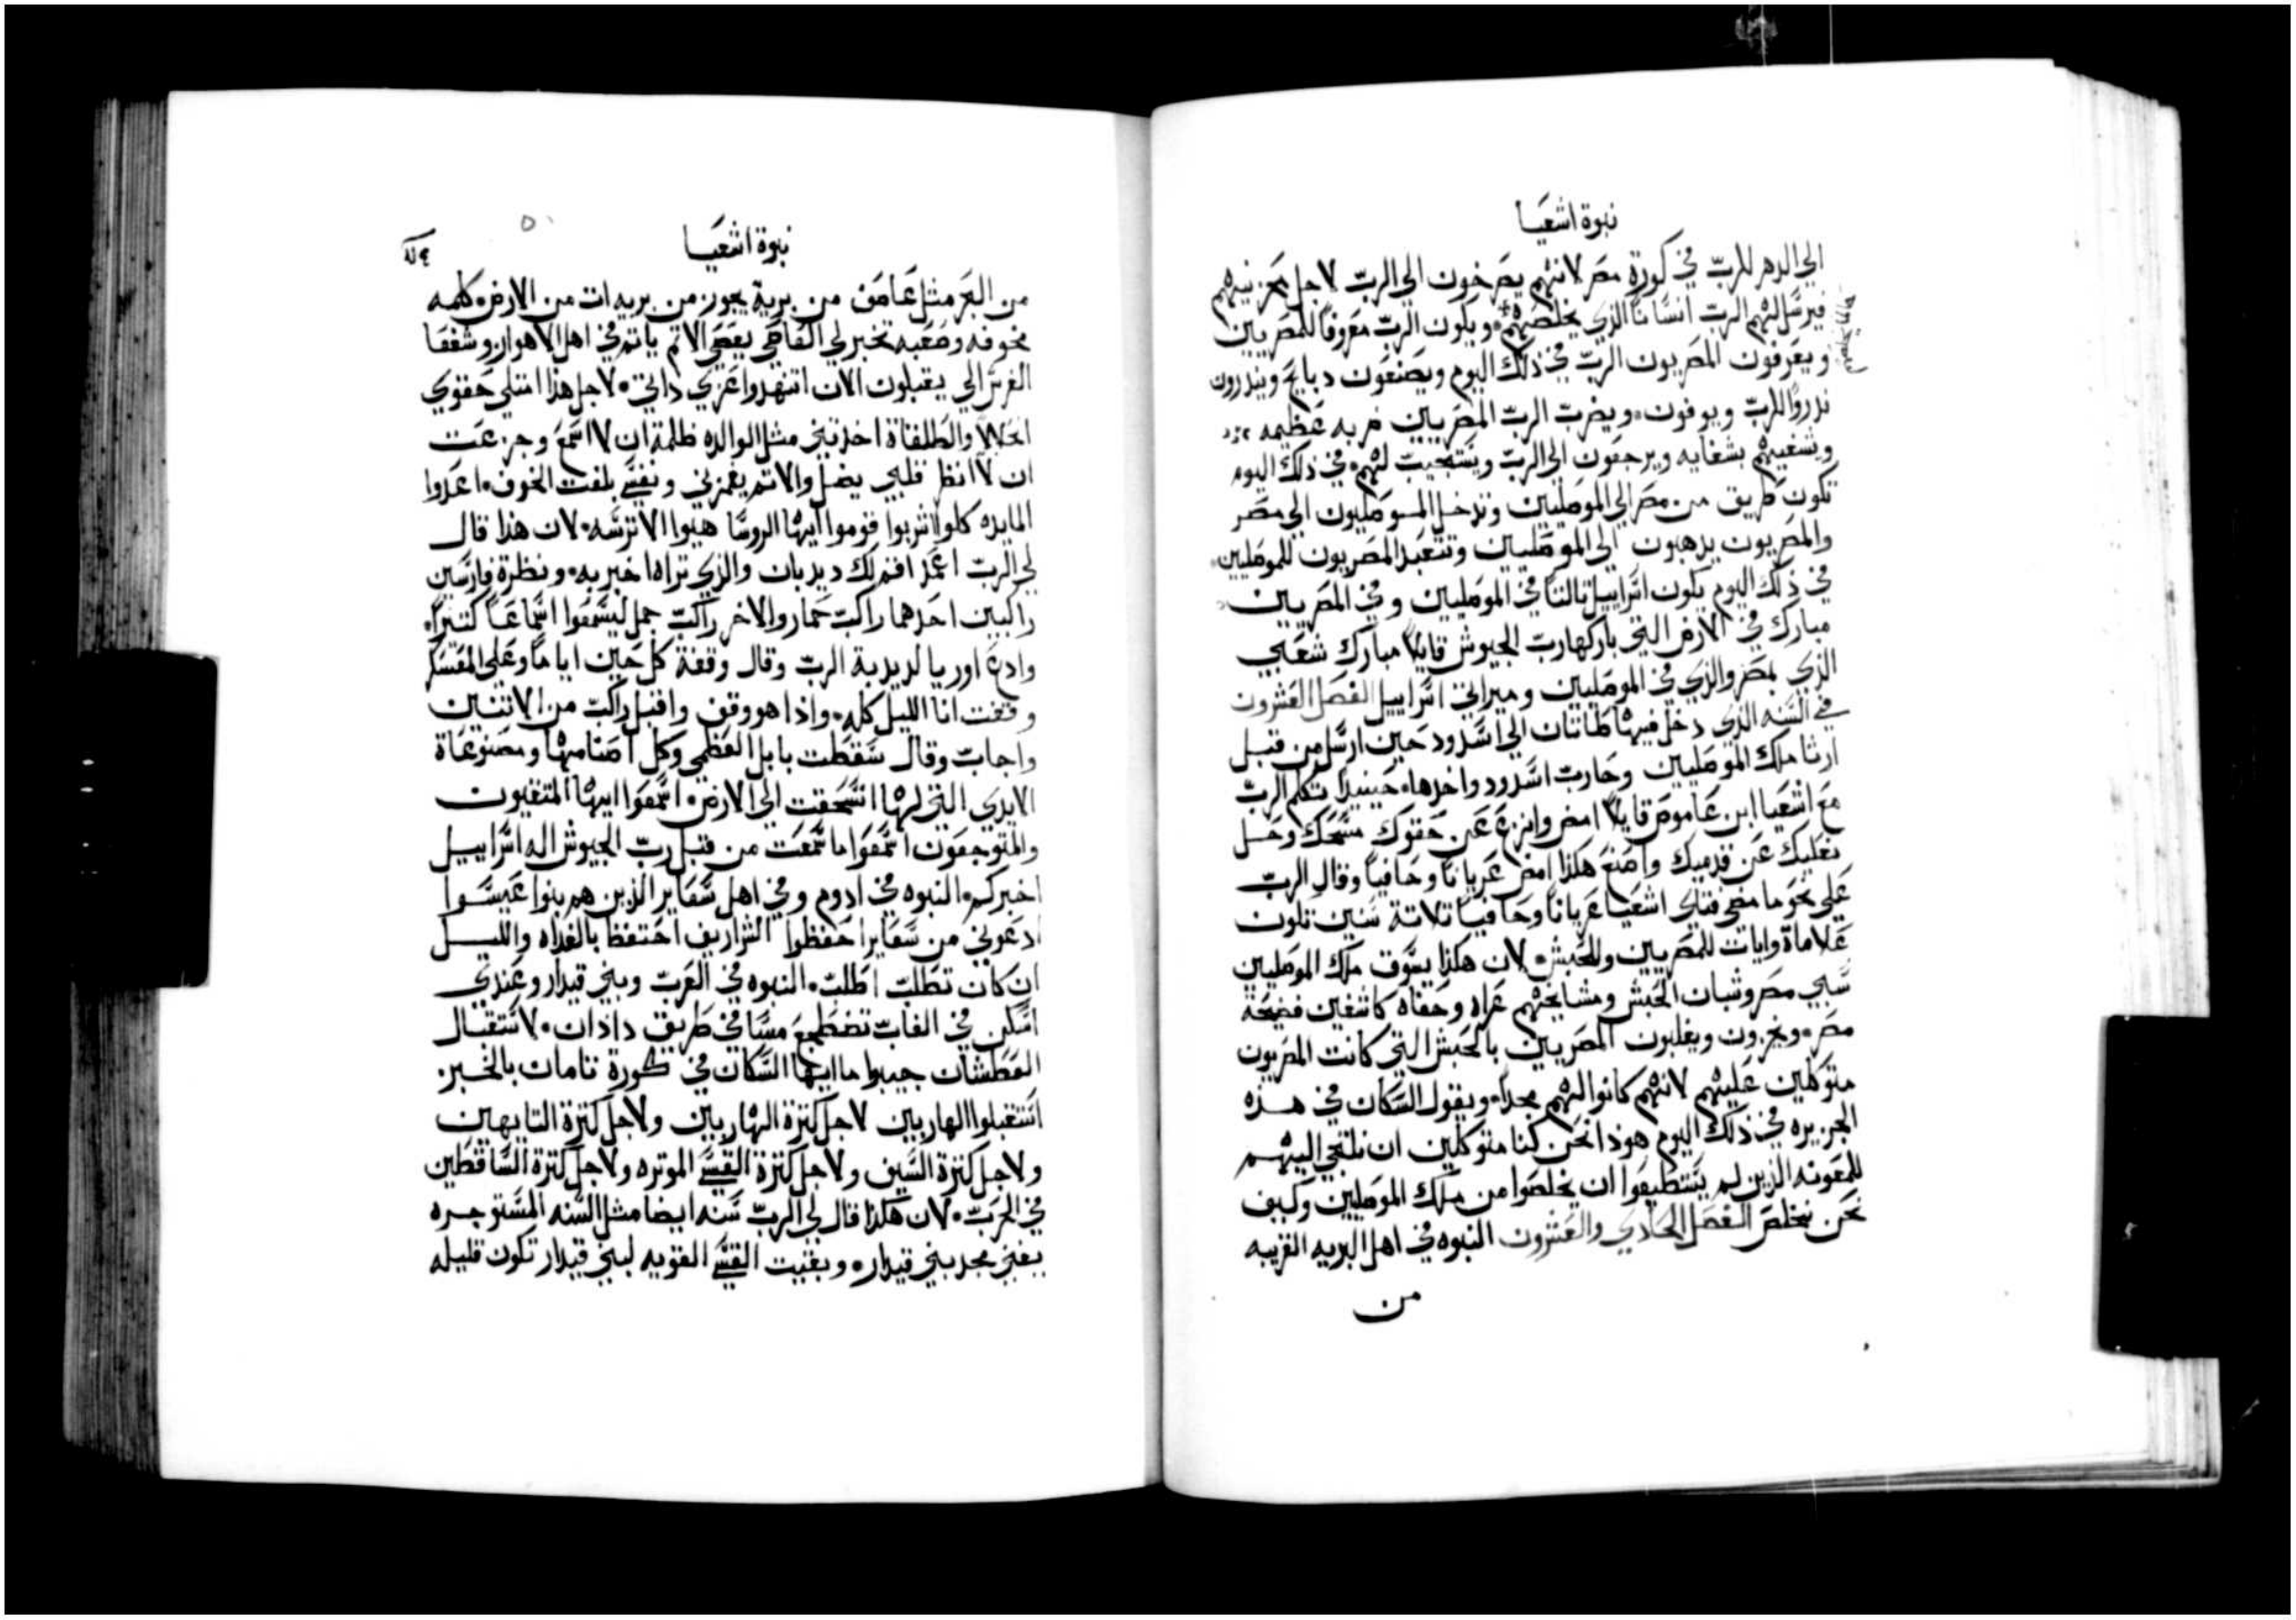 نبوة اشعيا
الي الدهر للرب في كورة مصر لانهم يصرخون الي الرب لاجل محزنيهم
فيرسل لهم الرب انسانا الذي يخلصهم ويكون الرب معروفا للمصريين
ويعرفون المصريون الرب في ذلك اليوم ويصنعون دبايح ويندرون
ندروا للرب ويوفون ويضرب الرب المصريين ضربه عظيمه
ويشفيهم بشفايه ويرجعون الي الرب ويستجيب لهم في ذلك اليوم
تكون طريق من مصر الي الموصليين وتدخل الموصليون الي مصر
والمصريون يدهبون الي الموصليين وتتعبد المصريون للموصليين
في ذلك اليوم يكون اسراييل تالتا في الموصليين وفي المصريين
مبارك في الارض التي باركها رب الجيوش قايلا مبارك شعبي
الذي بمصر والذي في الموصليين وميراثي اسراييل الفصل العشرون
في السنه الذي دخل فيها طاناتان الي اسدود حين ارسل من قبل
ارنا ملك الموصليين وحارب اسدود واخدها حينيدا تكلم الرب
مع اشعيا ابن عاموص قايلا امض وانزع عن حقوك مسحك وحل
نعليك عن قدميك واصنع هكذا امض عريانا وحافيا وقال الرب
علي نحو ما مضي فتاي اشعيا عريانا وحافيا تلاتة سنين تكون
علاماة وايات للمصريين وللحبش لان هكذا يسوق ملك الموصليين
سبي مصر وشبان الحبش ومشايخهم عراه وحفاه كاشفين فضيحة
مصر ويخزون ويغلبون المصريين بالحبش التي كانت المصريون
متوكلين عليهم لانهم كانوا لهم مجدا ويقول السكان في هذه
الجزيره في ذلك اليوم هوذا نحن كنا متوكلين ان نلتجي اليهم
للمعونه الذين لم يستطيعوا ان يخلصوا من ملك الموصليين وكيف
نحن نخلص الفصل الحادي والعشرون النبوه في اهل البريه القريبه
من
نبوة اشعيا
من البحر مثل عاصف من برية يجوز من بريه ات من الارض كلمه
مخوفه وصعبه تخبر لي القاصي يعصي الاتم ياتم في اهل الاهواز وشغفا
الفرس الي يقبلون الان اتنهدوا عزي داتي لاجل هذا امتلي حقوي
انحلالا والطلقاة اخدتني مثل الوالده ظلمة ان لا اسمع وجزعت
ان لا انظر قلبي يضل والاتم يغمرني ونفسي بلغت الخوف اعدوا
المايده كلوا اشربوا قوموا ايها الروسا هيوا الاترسه لان هذا قال
لي الرب اعمد اقم لك ديدبان والذي تراه اخبر به ونظرة فارسين
راكبين احدهما راكب حمار والاخر راكب جمل ليسمعوا اسماعا كتيرا
وادع اوريا لديدبة الرب وقال وقفة كل حين اياما وعلي المعسكر
وقفت انا الليل كله واذا هو وقف واقبل راكب من الاتنين
واجاب وقال سقطت بابل العظمي وكل اصنامها ومصنوعاة
الايدي التي لها انسحقت الي الارض اسمعوا ايها المتقيون
والمتوجعون اسمعوا ما سمعت من قبل رب الجيوش اله اسراييل
اخبركم النبوه في ادوم وفي اهل سعاير الذين هم بنوا عيسوا
ادعوني من سعايرا حفظوا الشراريف احتفظ بالغداه والليل
ان كان تطلب اطلب النبوه في العرب وبني قيدار وعندي
اسكن في الغاب تضطجع مسا في طريق دادان لاستقبال
العطشان جيبوا ما ايها السكان في كورة تامان بالخبز
استقبلوا الهاربين لاجل كترة الهاربين ولاجل كترة التايهين
ولاجل كترة السيف ولاجل كترة القسي الموتره ولاجل كترة الساقطين
في الحرب لان هكذا قال لي الرب سنه ايضا مثل السنه المستوجره
يفني مجد بني قيدار وبقيت القسي القويه لبني قيدار تكون قليله